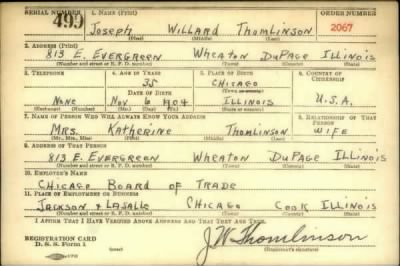 SERIAL NUMBER 499 1. NAME (Print) ORDER NUMBER
JOSEPH WILLARD THOMLINSON 2067
(First) (Middle) (Last)
2. ADDRESS (Print)
813 E. EVERGREEN WHEATON DUPAGE ILLINOIS
(Number and street or R. F. D. number) (Town) (County) (State)
3. TELEPHONE 4. AGE IN YEARS 5. PLACE OF BIRTH 6. COUNTRY OF CITIZENSHIP
35 CHICAGO
DATE OF BIRTH (Town or county)
NONE NOV 6 1904 ILLINOIS U.S.A.
(Exchange) (Number) (Mo.) (Day) (Yr.) (State or country)
7. NAME OF PERSON WHO WILL ALWAYS KNOW YOUR ADDRESS 8. RELATIONSHIP OF THAT PERSON
MRS. KATHERINE THOMLINSON WIFE
(Mr., Mrs., Miss) (First) (Middle) (Last)
9. ADDRESS OF THAT PERSON
813 E. EVERGREEN WHEATON DUPAGE ILLINOIS
(Number and street or R. F. D. number) (Town) (County) (State)
10. EMPLOYER'S NAME
CHICAGO BOARD OF TRADE
11. PLACE OF EMPLOYMENT OR BUSINESS
JACKSON & LASALLE CHICAGO COOK ILLINOIS
(Number and street or R. F. D. number) (Town) (County) (State)
I AFFIRM THAT I HAVE VERIFIED ABOVE ANSWERS AND THAT THEY ARE TRUE.
REGISTRATION CARD
D. S. S. Form 1
J W Thomlinson
(Registrant's signature)